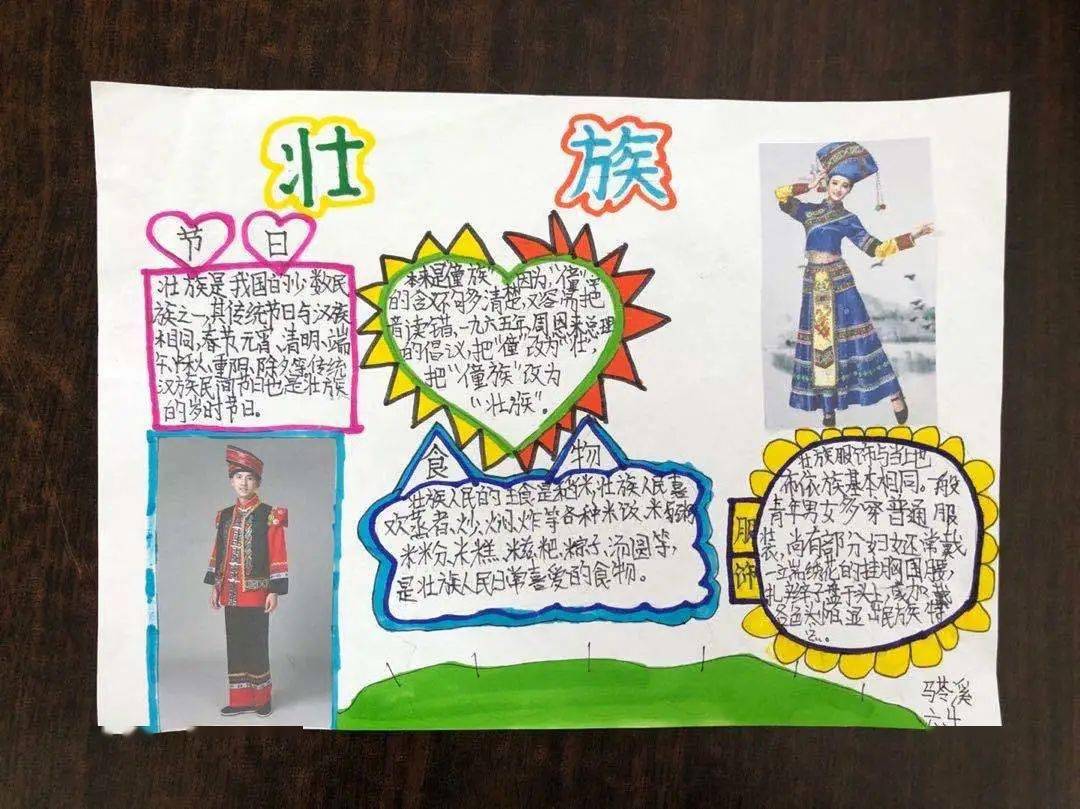 壮族
节日
壮族是我国的少数民
族之一,其传统节日与汉族
相同,春节、元宵、清明、端
午、中秋、重阳、除夕等传统
汉族民间节日也是壮族
的岁时节日。
本来是“僮族”,因为“僮”字
的含义不够清楚,又容易把
音读错,一九六五年,周恩来总理
的倡议,把“僮”改为“壮”,
把“僮族”改为
“壮族”。
食物
壮族人民的主食是稻米,壮族人民喜
欢蒸、煮、炒、焖、炸等各种米饭、米粥、
米粉、米糕、糍粑、粽子、汤圆等,
是壮族人民日常喜爱的食物。
服饰
壮族服饰与当地
族基本相同。一般
青年男女多穿普通服
装,尚有部分妇女还常戴
绣花的挂胸围腰,
民族情
马苓溪